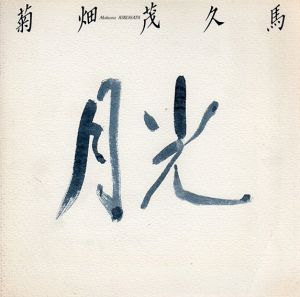 菊畑茂久馬
Mokuma KIKUHATA
月光